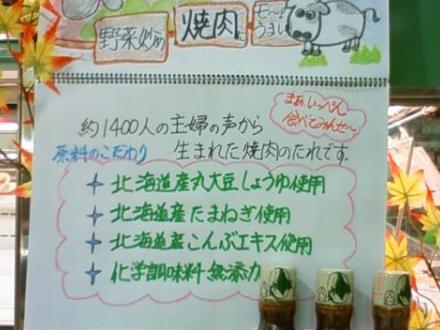 野菜炒め
焼肉に
モ～
うまい
まぁ、いっぺん
食べてみんせ～
約1400人の主婦の声から
原料のこだわり
生まれた焼肉のたれです。
北海道産丸大豆しょうゆ使用
北海道産たまねぎ使用
北海道産こんぶエキス使用
化学調味料無添加